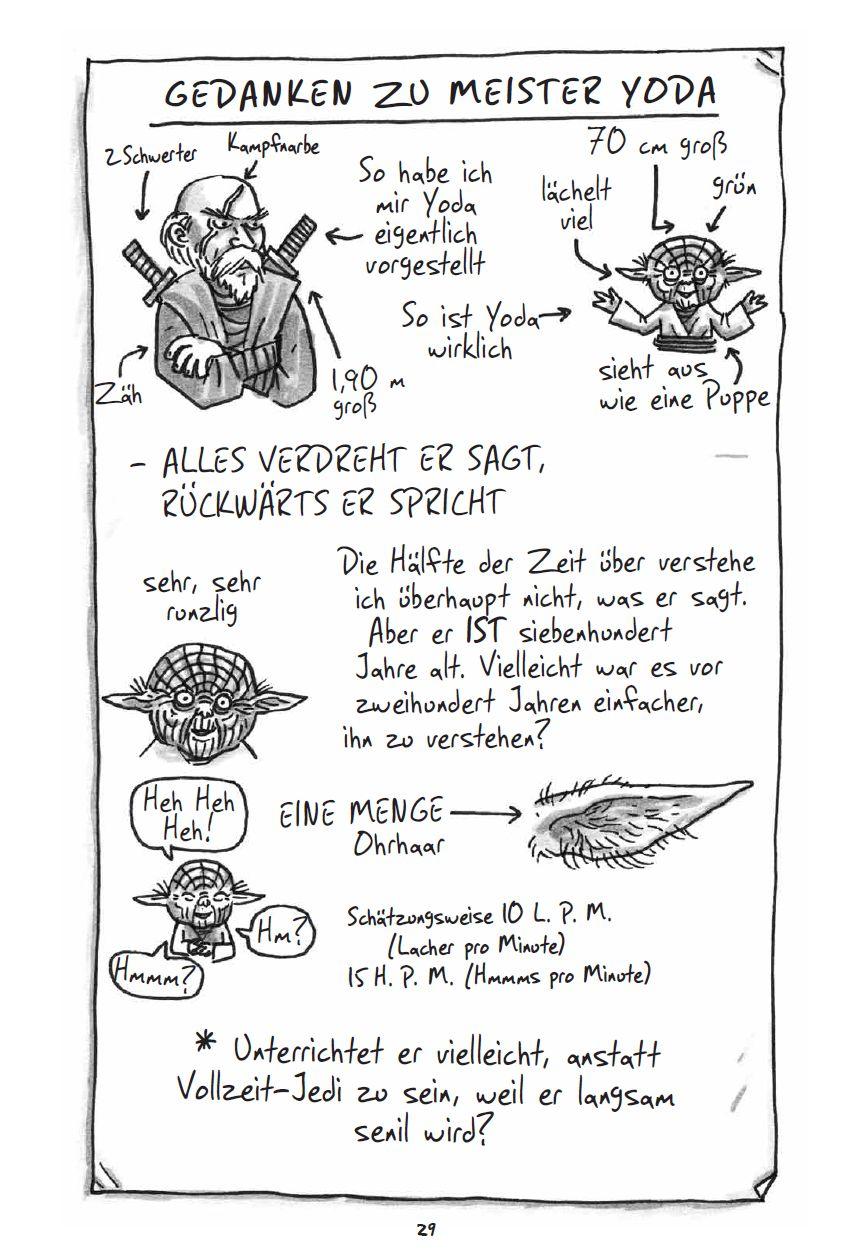 GEDANKEN ZU MEISTER YODA
2 Schwerter
Kampfnarbe
So habe ich
mir Yoda
eigentlich
vorgestellt
Zäh
1,90 m
groß
70 cm groß
lächelt
viel
grün
So ist Yoda
wirklich
sieht aus
wie eine Puppe
- ALLES VERDREHT ER SAGT,
RÜCKWÄRTS ER SPRICHT
sehr, sehr
runzlig
Die Hälfte der Zeit über verstehe
ich überhaupt nicht, was er sagt.
Aber er IST siebenhundert
Jahre alt. Vielleicht war es vor
zweihundert Jahren einfacher,
ihn zu verstehen?
Heh Heh
Heh!
EINE MENGE
Ohrhaar
Hm?
Hmmm?
Schätzungsweise 10 L. P. M.
(Lacher pro Minute)
15 H. P. M. (Hmmms pro Minute)
* Unterrichtet er vielleicht, anstatt
Vollzeit-Jedi zu sein, weil er langsam
senil wird?
29